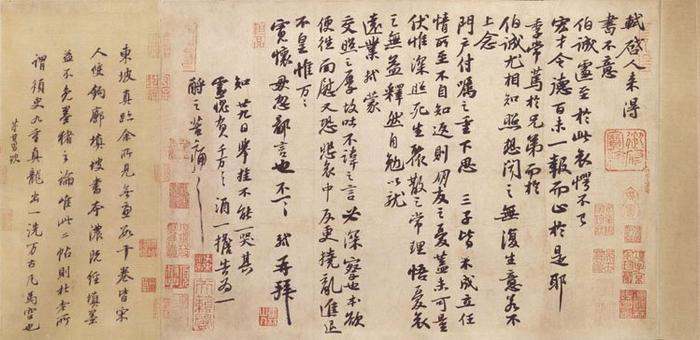 軾啓人來得
書不意
伯誠遽至於此哀愕不已
宏才令德百未一報而止於是耶
季常篤於兄弟而於
伯誠尤相知照想聞之無復生意若不
上念
門戶付囑之重下思三子皆不成立任
情所至不自知返則朋友之憂蓋未可量
伏惟深照死生聚散之常理悟憂哀
之無益釋然自勉以就
遠業軾蒙
交照之厚故吐不諱之言必深察也本欲
便往面慰又恐悲哀中反更撓亂進退
不皇惟万万
寬懷毋忽鄙言也不一一軾再拜
知廿九日舉掛不能一哭其
靈愧負千万千万酒一擔告為一
酹之苦痛苦痛
東坡真跡余所見無慮數十卷皆宋
人雙鉤廓填坡書本濃既經填墨
益不免墨豬之論唯此二帖則杜老所
謂須臾九重真龍出一洗万古凡馬空也
董其昌跋